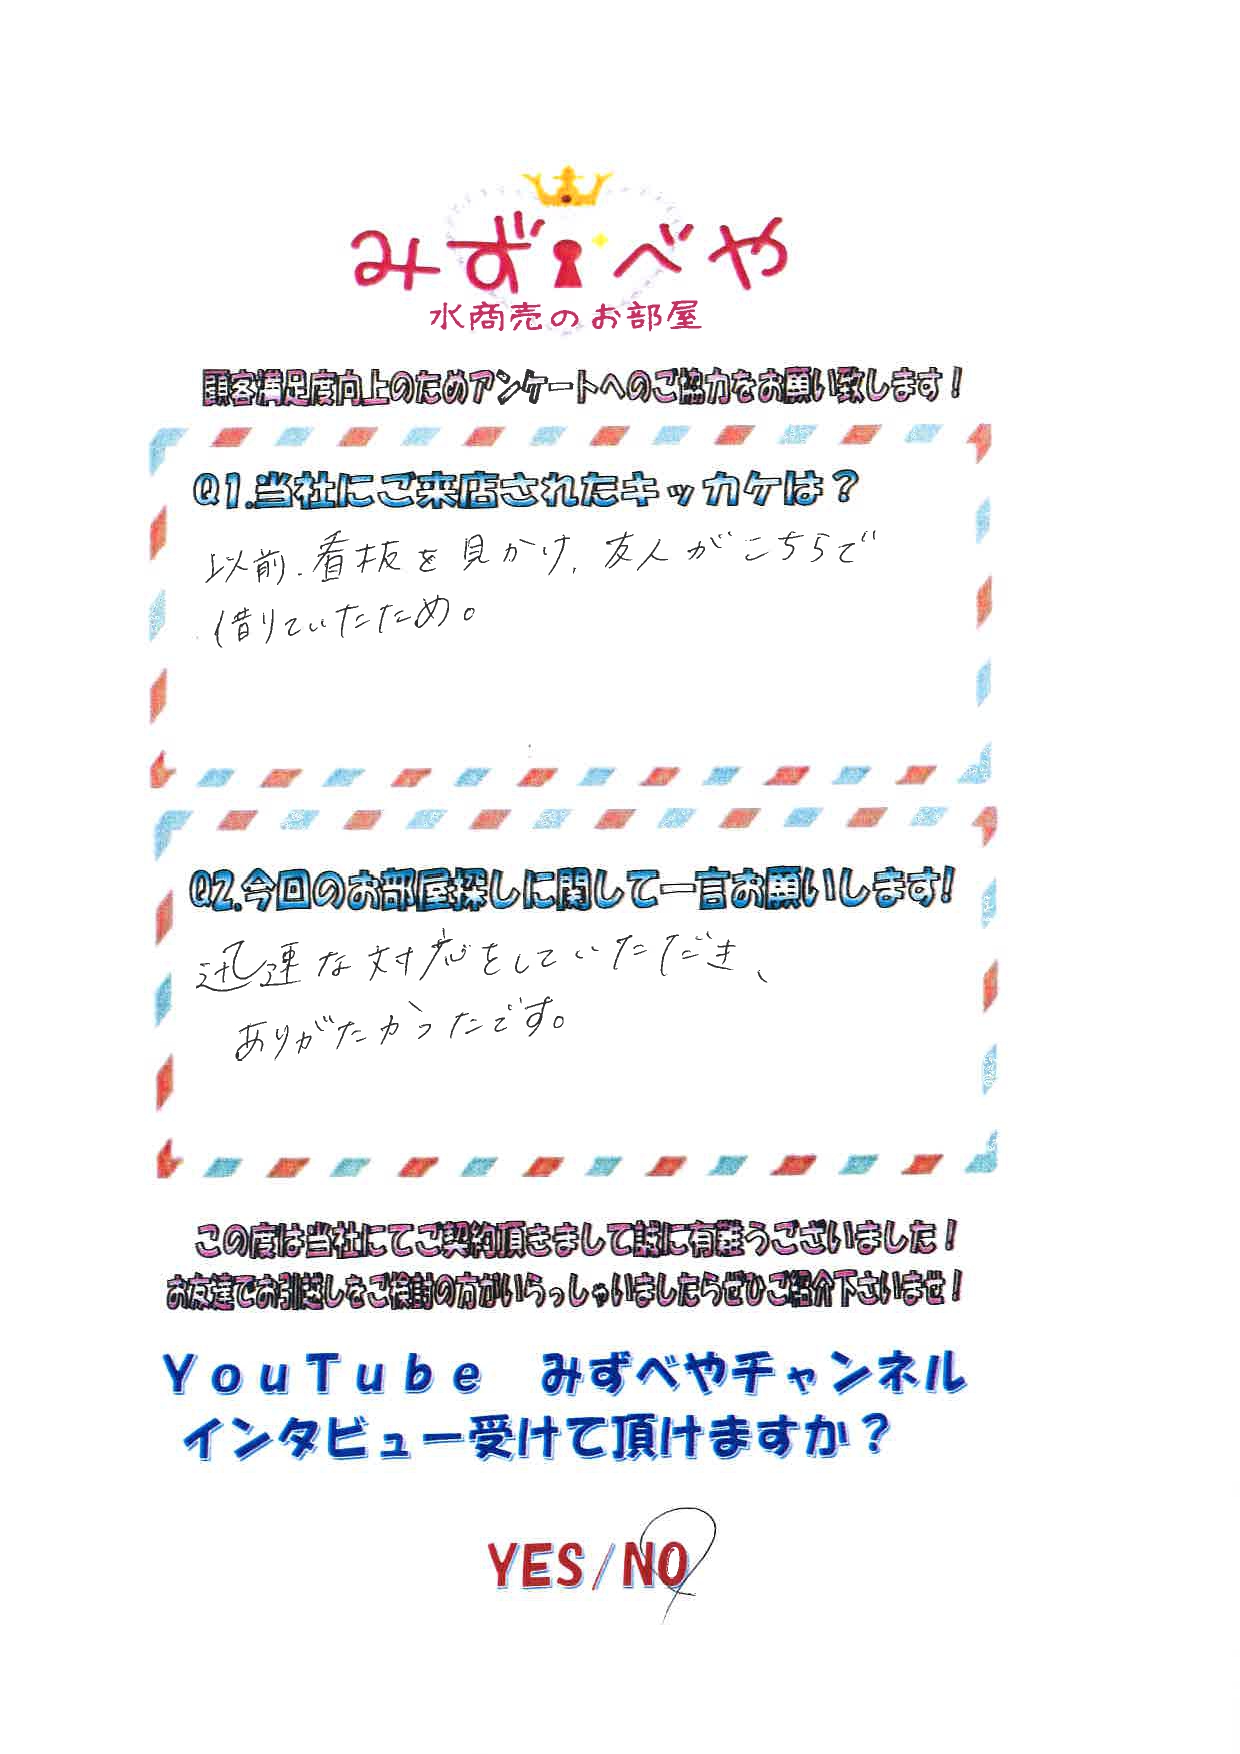 みずべや
水商売のお部屋
顧客満足度向上のためアンケートへのご協力をお願い致します！
Q1.当社にご来店されたキッカケは？
以前、看板を見かけ、友人がこちらで
借りていたため。
Q2.今回のお部屋探しに関して一言お願いします!
迅速な対応をしていただき、
ありがたかったです。
この度は当社にてご契約頂きまして誠に有難うございました！
お友達でお引越しをご検討の方がいらっしゃいましたらぜひご紹介下さいませ！
YouTube　みずべやチャンネル
インタビュー受けて頂けますか？
YES/NO